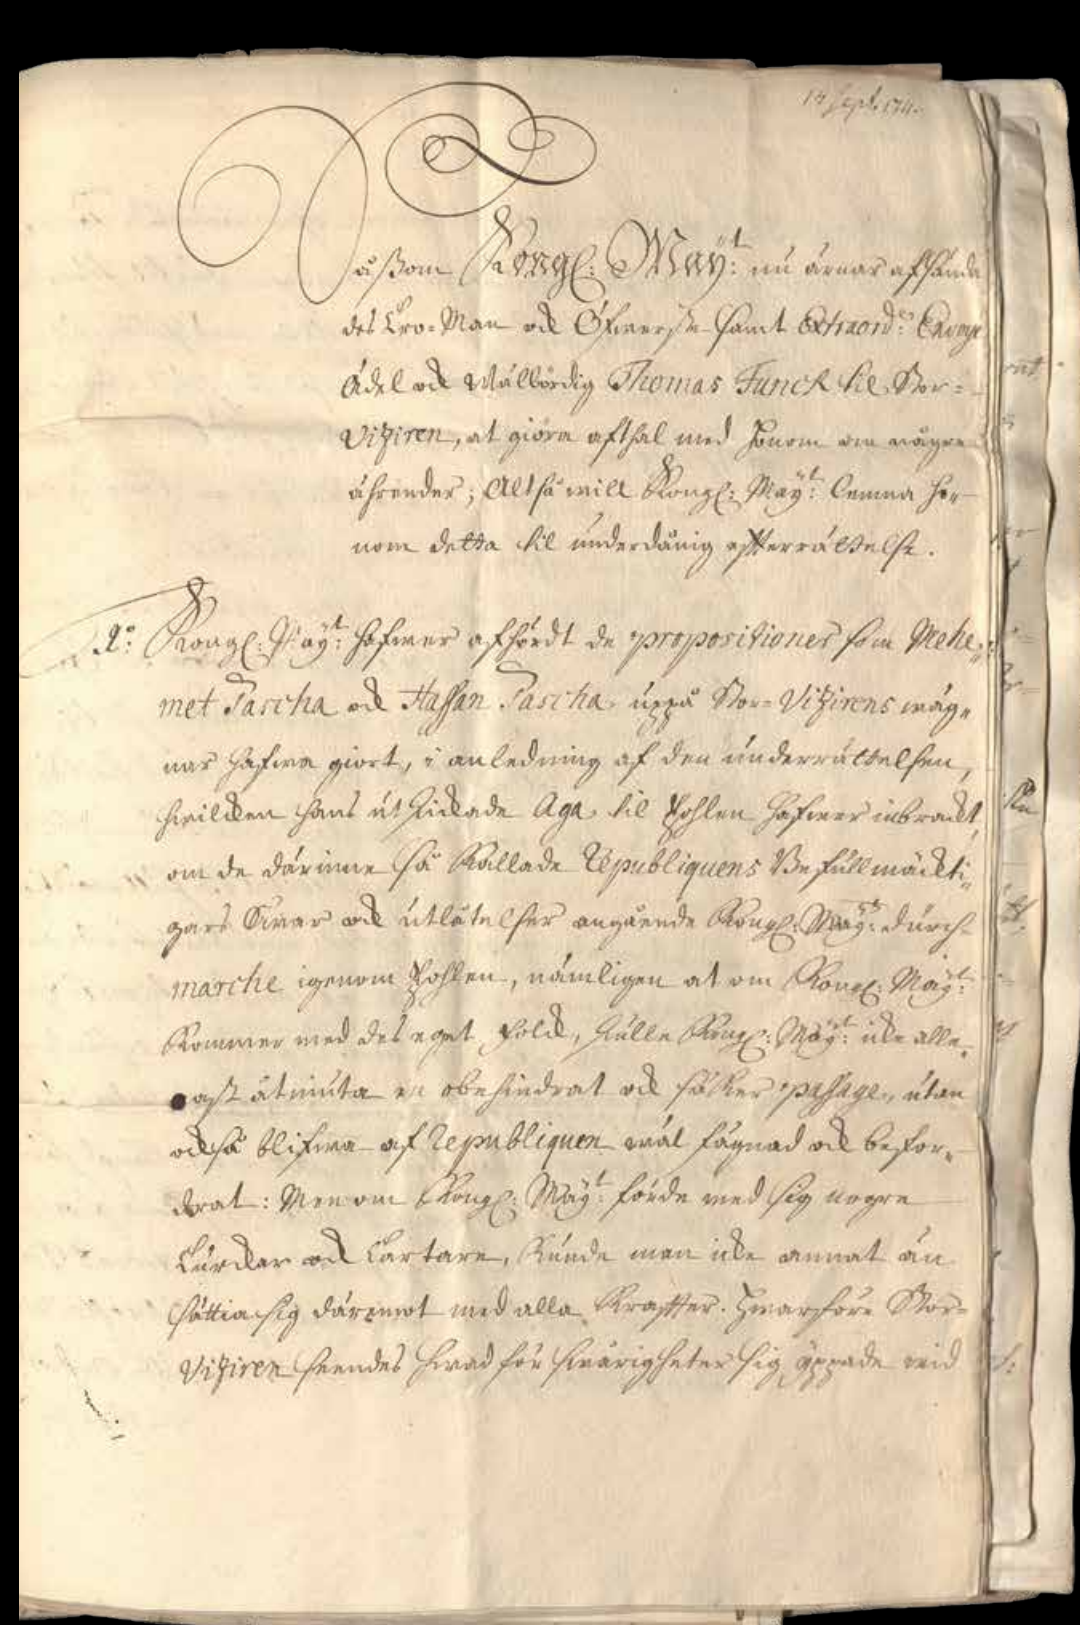 14 Sept. 1714.
Såssom Kongl: Maÿt: nu ärnar afsända
des Tro-Man och Öfwerste samt Extraord: Envoyé
Ädel och Wälbördig Thomas Funck til Stor-
Viziren, at giöra afthal med honom om någre
ährender; Altså will Kongl: Maÿt: lemna ho-
nom detta til underdånig effterrättelse.
1o: Kongl: Maÿt: hafwer afhördt de propositioner som Mehe-
met Pascha och Hassan Pascha uppå Stor-Vizirens wäg-
nar hafwa giort, i anledning af den underrättelsen,
hwilcken hans utskickade Aga til Pohlen hafwer inbrackt,
om de därinne så kallade Republiquens Befullmäckti-
gars swar och utlåtelser angående Kongl: Maÿtz: durch-
marche igenom Pohlen, nämligen at om Kongl: Maÿt:
kommer med des eget folck, skulle Kongl: Maÿt: icke alle-
nast åtniuta en obehindrat och säker passage, utan
också blifwa af Republiquen wäl fägnad och befor-
drat: Men om Kongl: Maÿt: förde med sig nogre
Turckar och Tartare, kunde man icke annat än
sättia sig däremot med alla kraffter. Hwarföre Stor-
Viziren seendes hwad för swårigheter sig yppade wid